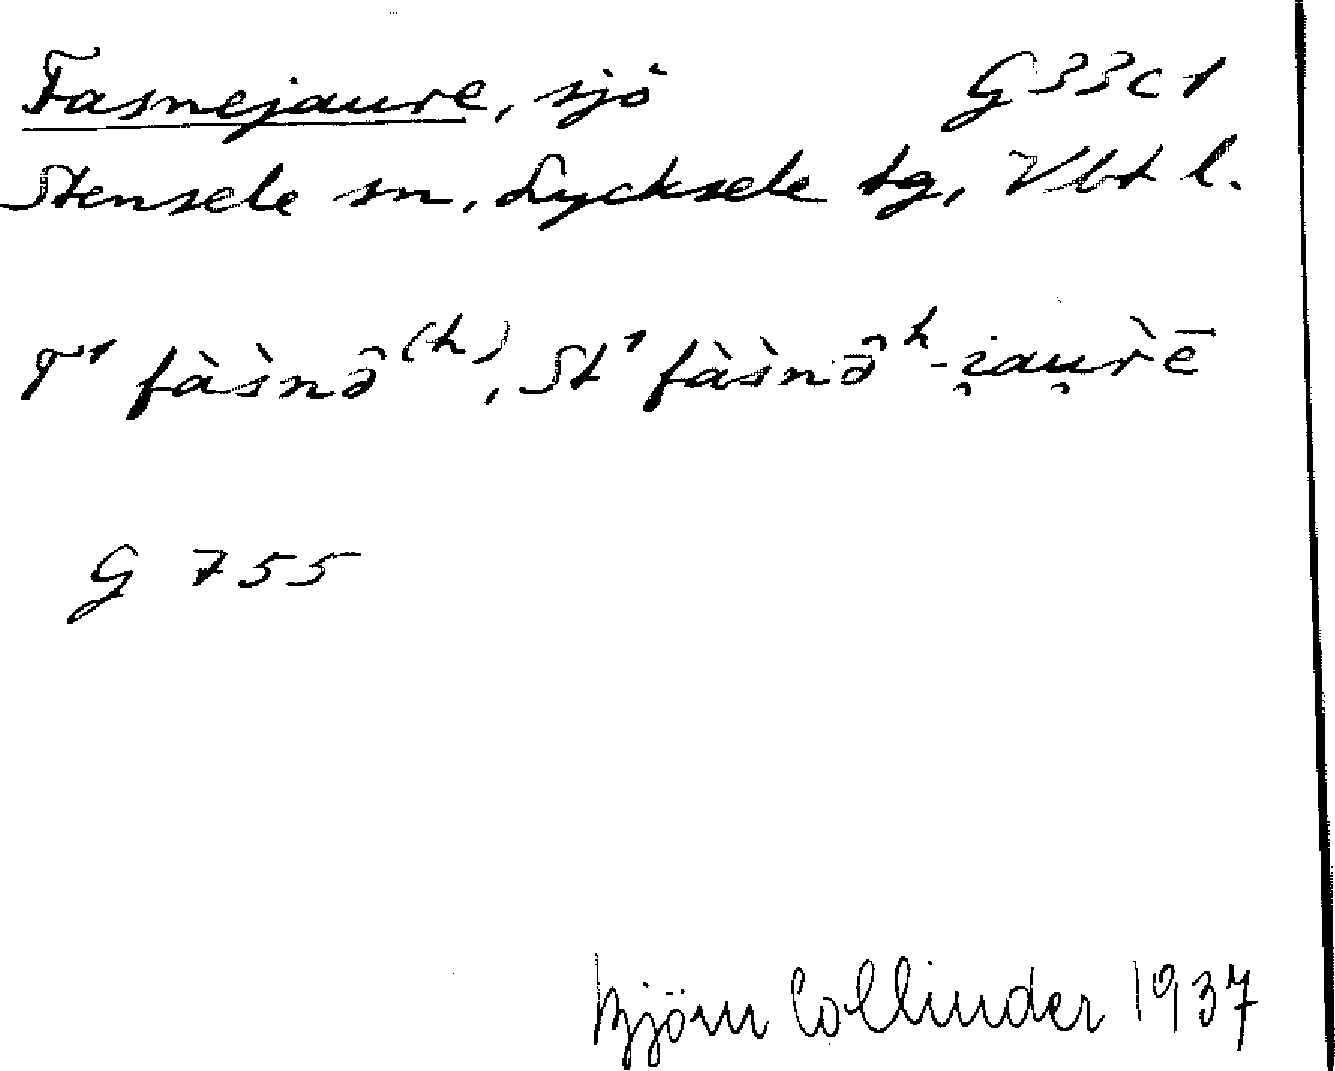 Fasnejaure, sjö G33c1
Stensele sn, Lycksele tg, Vbt l.
T¹ fàs̀nə̂⁽ʰ⁾, St¹ fàs̀nə̂ʰ-i̯au̯r̀ē
G 755
Björn Collinder 1937